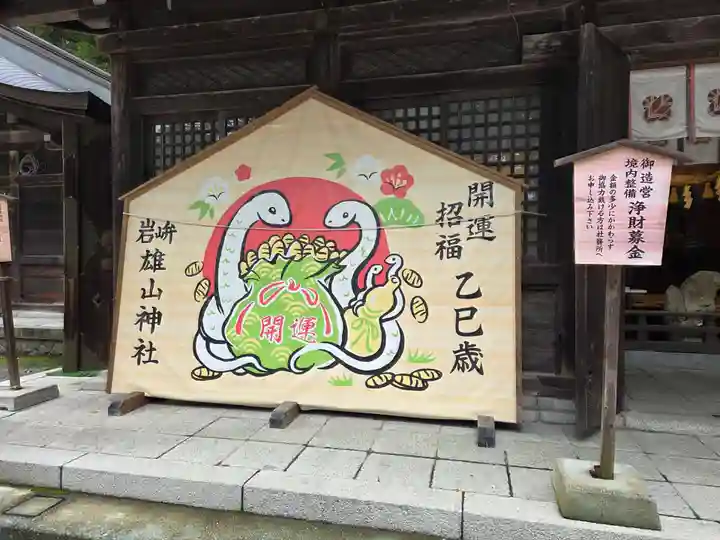 開運
招福
乙巳歳
開運
岩峅
雄山神社
御造営
境内整備
浄財募金
金額の多少にかかわらず
御協力戴ける方は社務所へ
お申し込み下さい